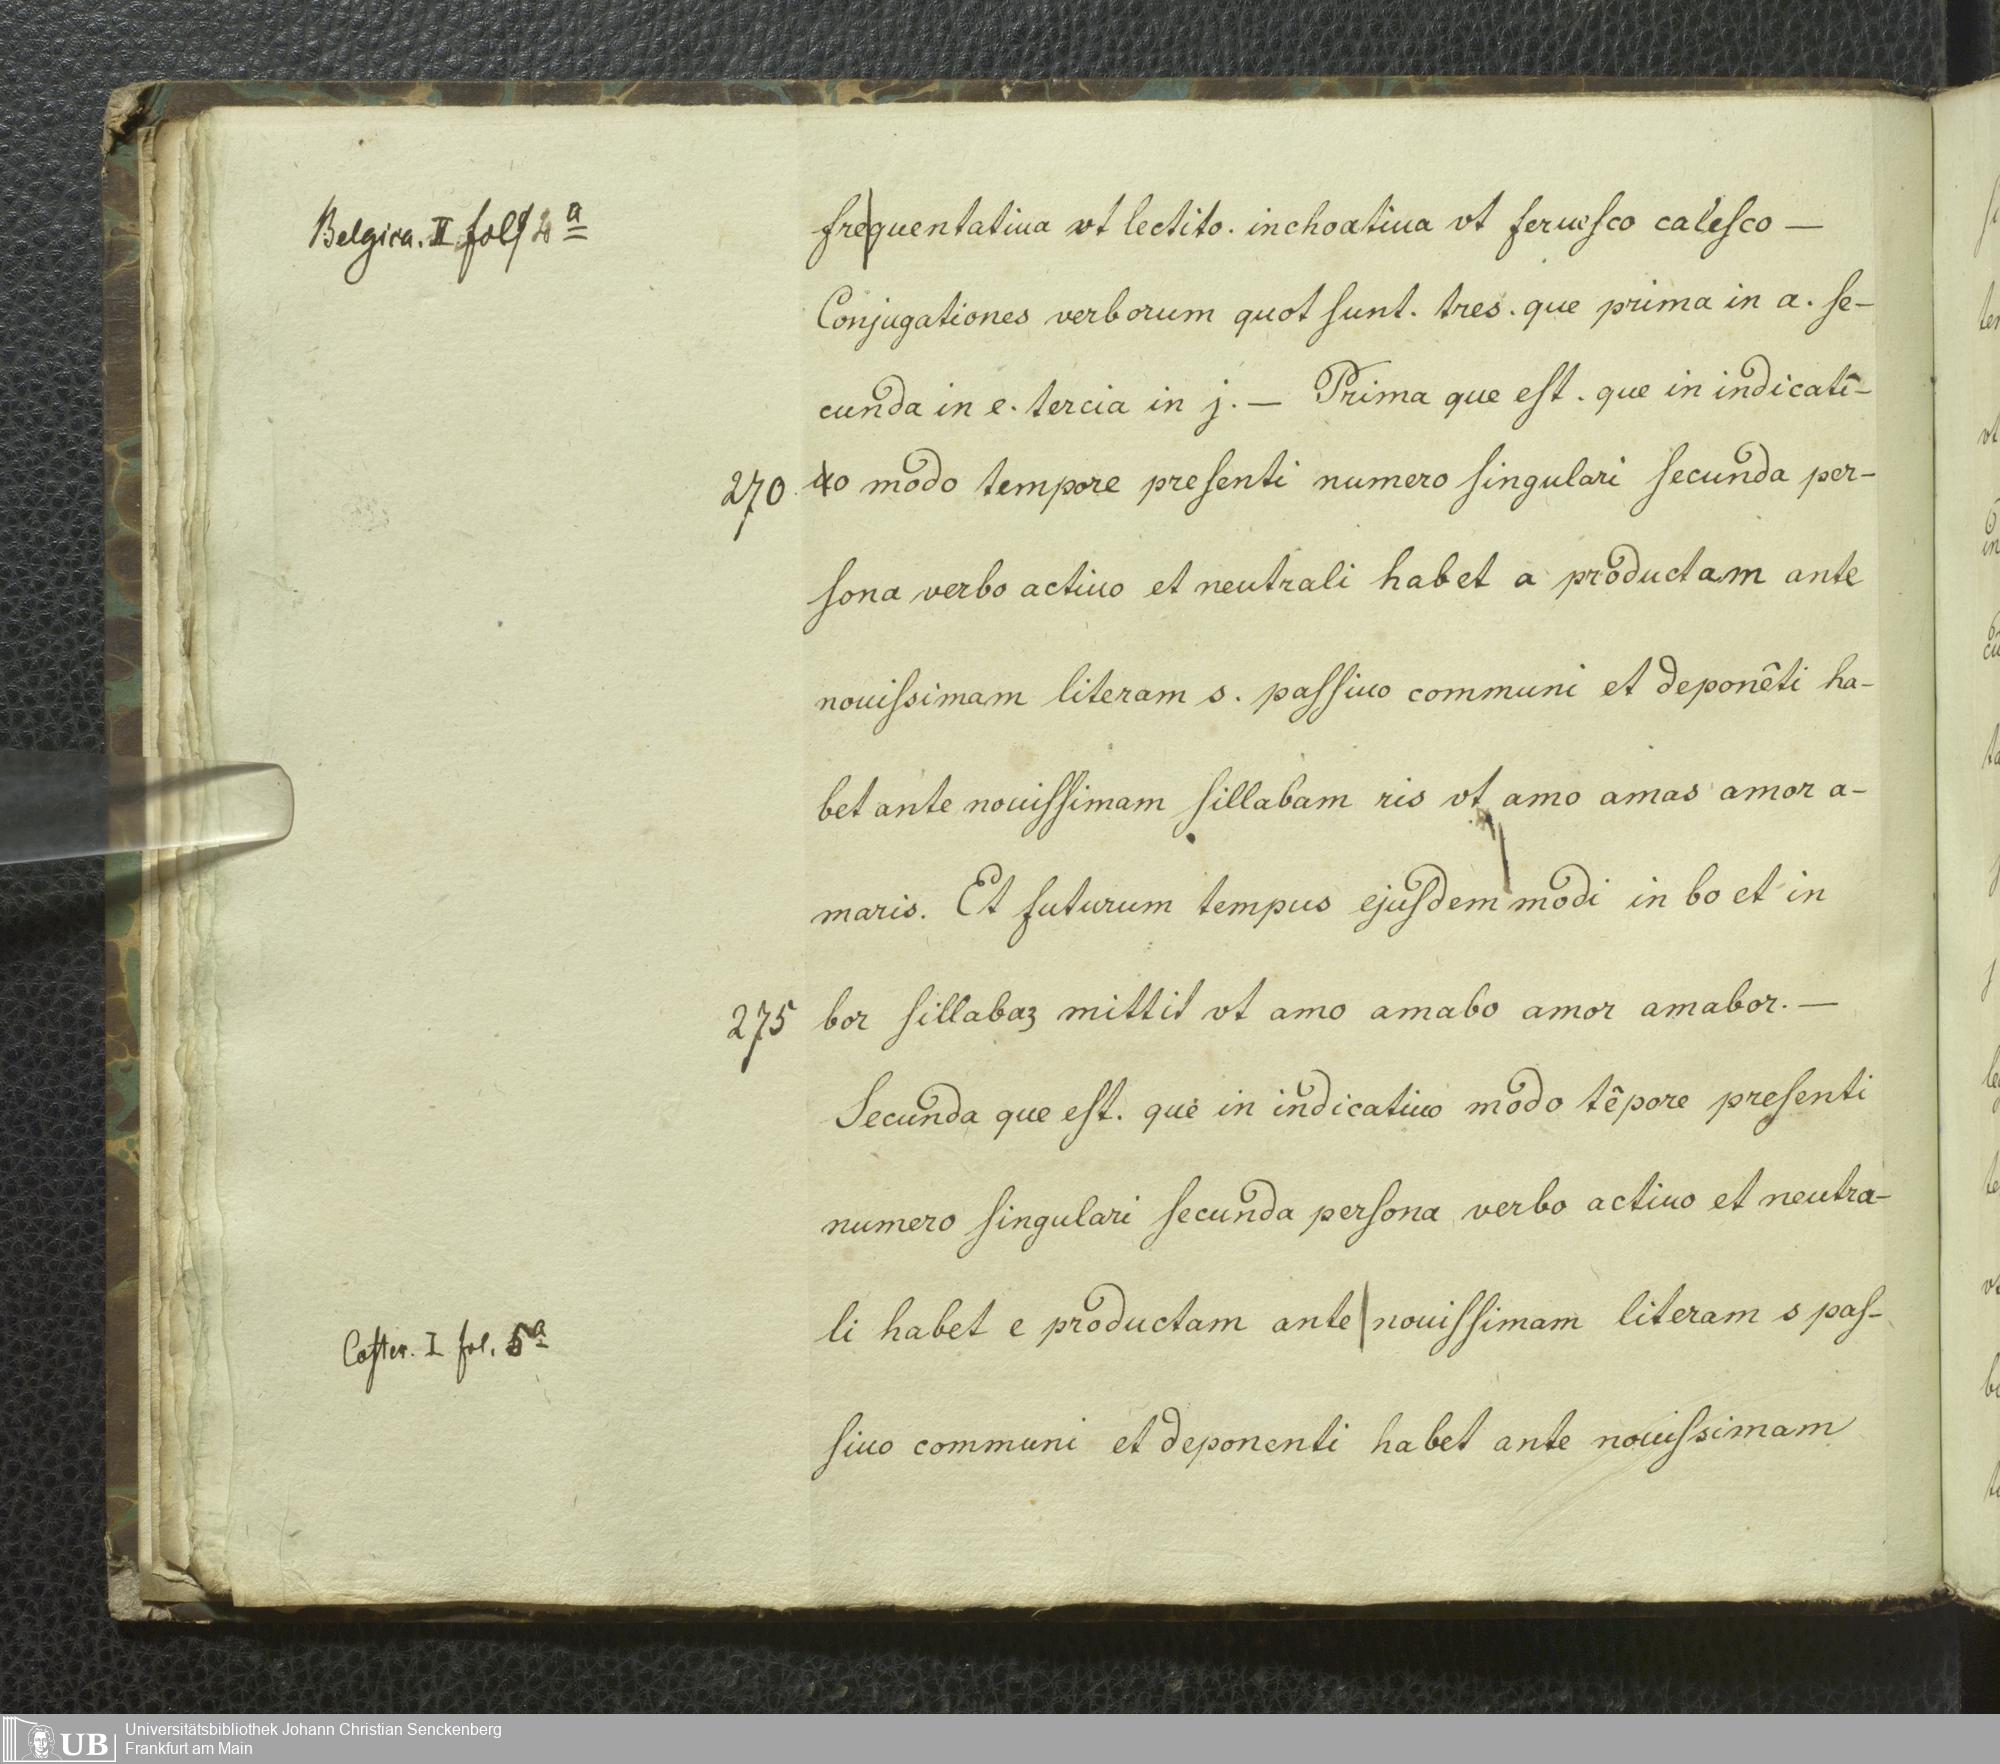 Belgica. II fol. 4a
fre|quentatiua vt lectito. inchoatiua vt feruesco calesco —
Conjugationes verborum quot sunt. tres. que prima in a. se-
cunda in e. tercia in j. — Prima que est. que in indicatī-
270. uo modo tempore presenti numero singulari secunda per-
sona verbo actiuo et neutrali habet a productam ante
nouissimam literam s. passiuo communi et deponēti ha-
bet ante nouissimam sillabam ris vt amo amas amor a-
maris. Et futurum tempus ejusdem|modi in bo et in
275 bor sillabaʒ mittit vt amo amabo amor amabor. —
Secunda que est. que in indicatiuo modo tēpore presenti
numero singulari secunda persona verbo actiuo et neutra-
li habet e productam ante|nouissimam literam s pas-
Coster. I fol. 5a
siuo communi et deponenti habet ante nouissimam
UB
Universitätsbibliothek Johann Christian Senckenberg
Frankfurt am Main